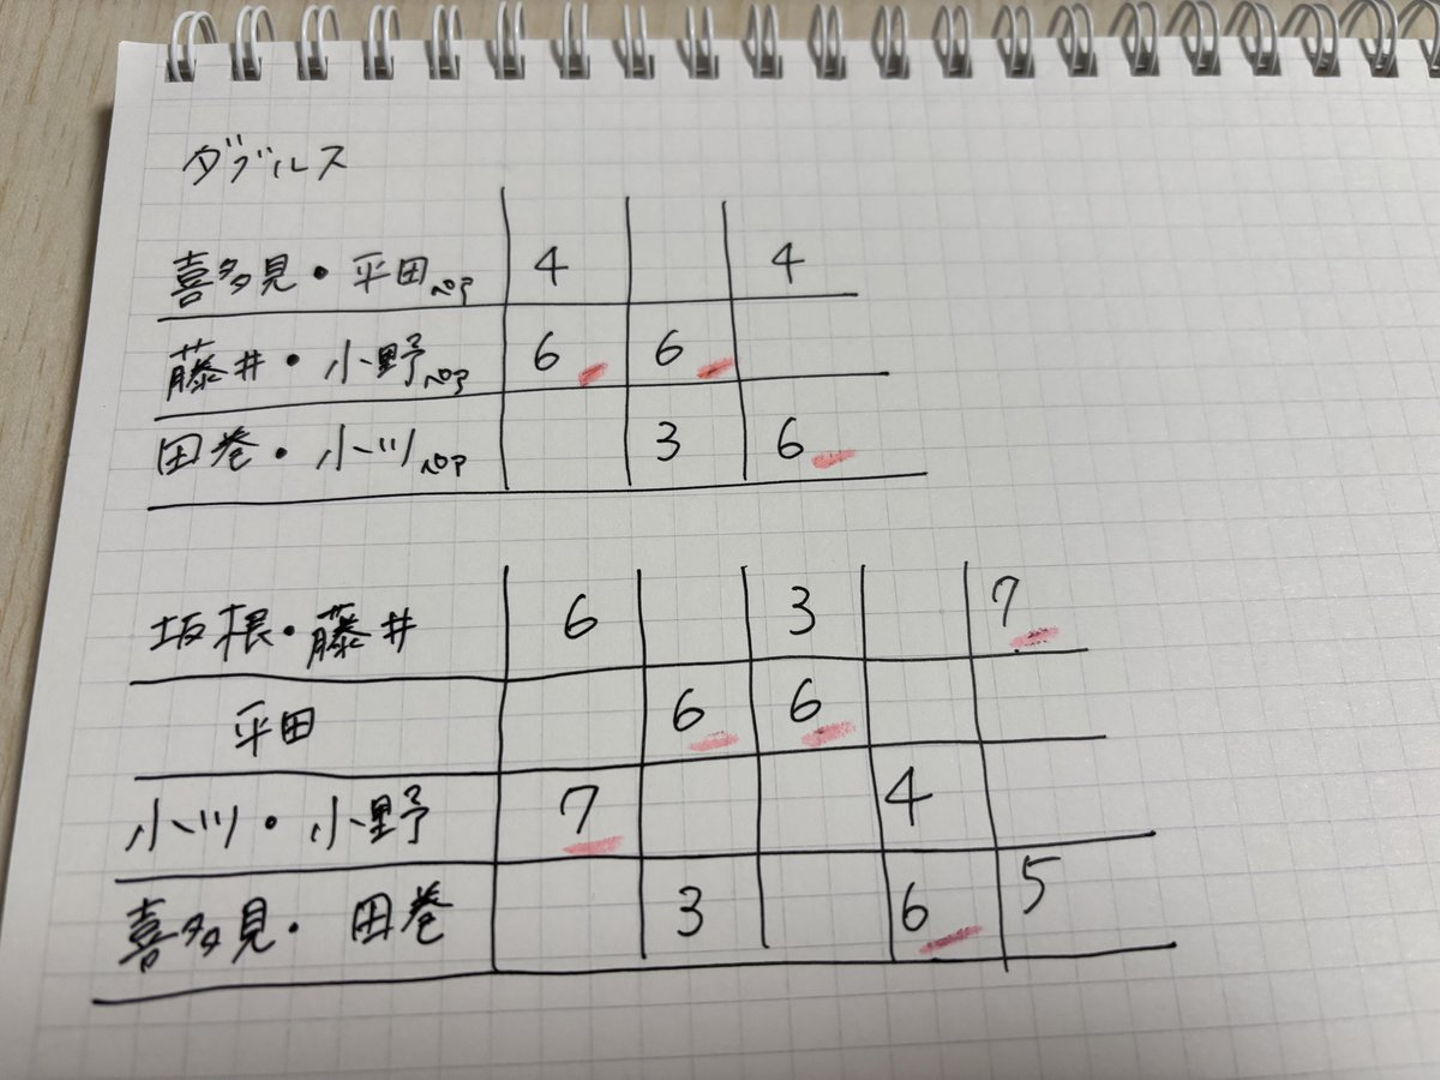 ダブルス
喜多見・平田ペア 4 4
藤井・小野ペア 6 6
田巻・小川ペア 3 6
坂根・藤井 6 3 7
平田 6 6
小川・小野 7 4
喜多見・田巻 3 6 5